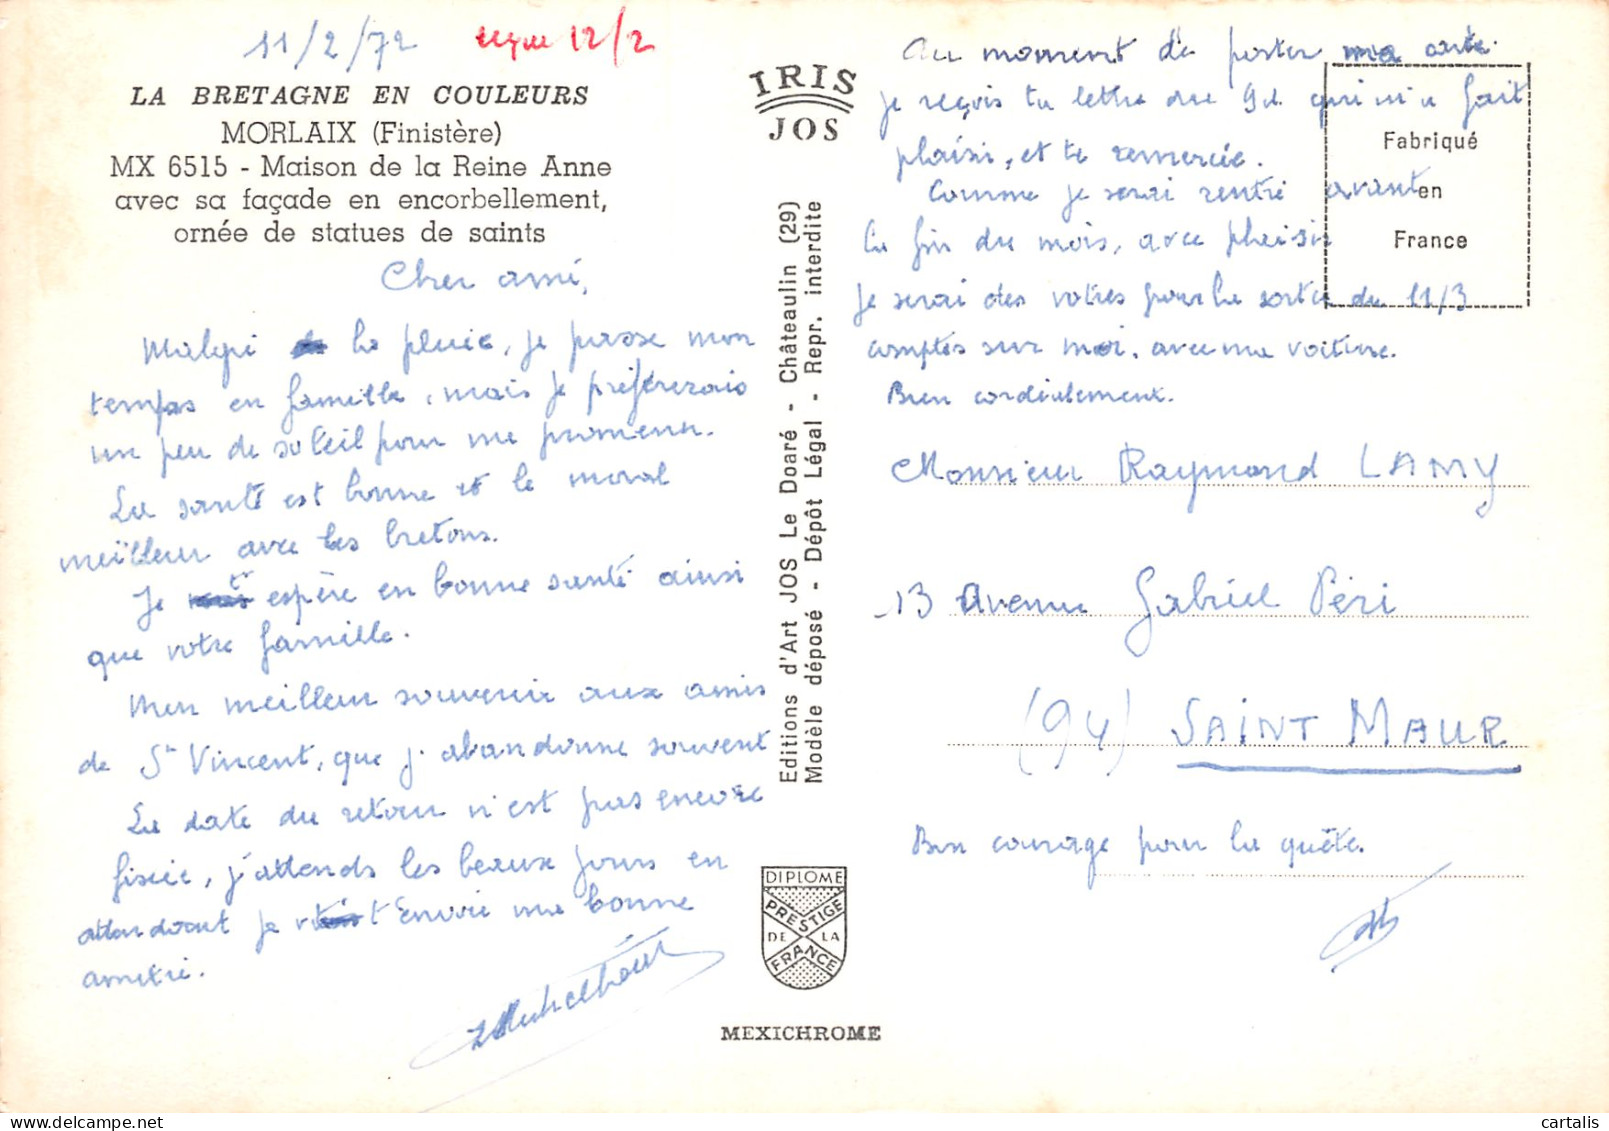 11/2/72 reçue 12/2
LA BRETAGNE EN COULEURS
MORLAIX (Finistère)
MX 6515 - Maison de la Reine Anne
avec sa façade en encorbellement,
ornée de statues de saints
Cher ami,
Malgré la pluie, je passe mon
temps en famille, mais je préférerais
un peu de soleil pour me promener.
La santé est bonne et le moral
meilleur avec les bretons.
Je t'espère en bonne santé ainsi
que votre famille.
Mon meilleur souvenir aux amis
de St Vincent, que j'abandonne souvent
La date du retour n'est pas encore
fixée, j'attends les beaux jours en
attendant je t'envoie ma bonne
amitié.
IRIS
JOS
Editions d'Art JOS Le Doaré - Châteaulin (29)
Modèle déposé - Dépôt Légal - Repr. interdite
DIPLOME
PRESTIGE
DE LA
FRANCE
MEXICHROME
Au moment de poster ma carte
je reçois ta lettre du 9 qui m'a fait
plaisir, et te remercie.
Comme je serai rentré avant
la fin du mois, avec plaisir
je serai des vôtres pour la sortie du 11/3
comptez sur moi, avec ma voiture.
Bien cordialement.
Fabriqué
en
France
Monsieur Raymond LAMY
13 Avenue Gabriel Péri
(94) SAINT MAUR
Bon courage pour la quête.
© cartalis | delcampe.net